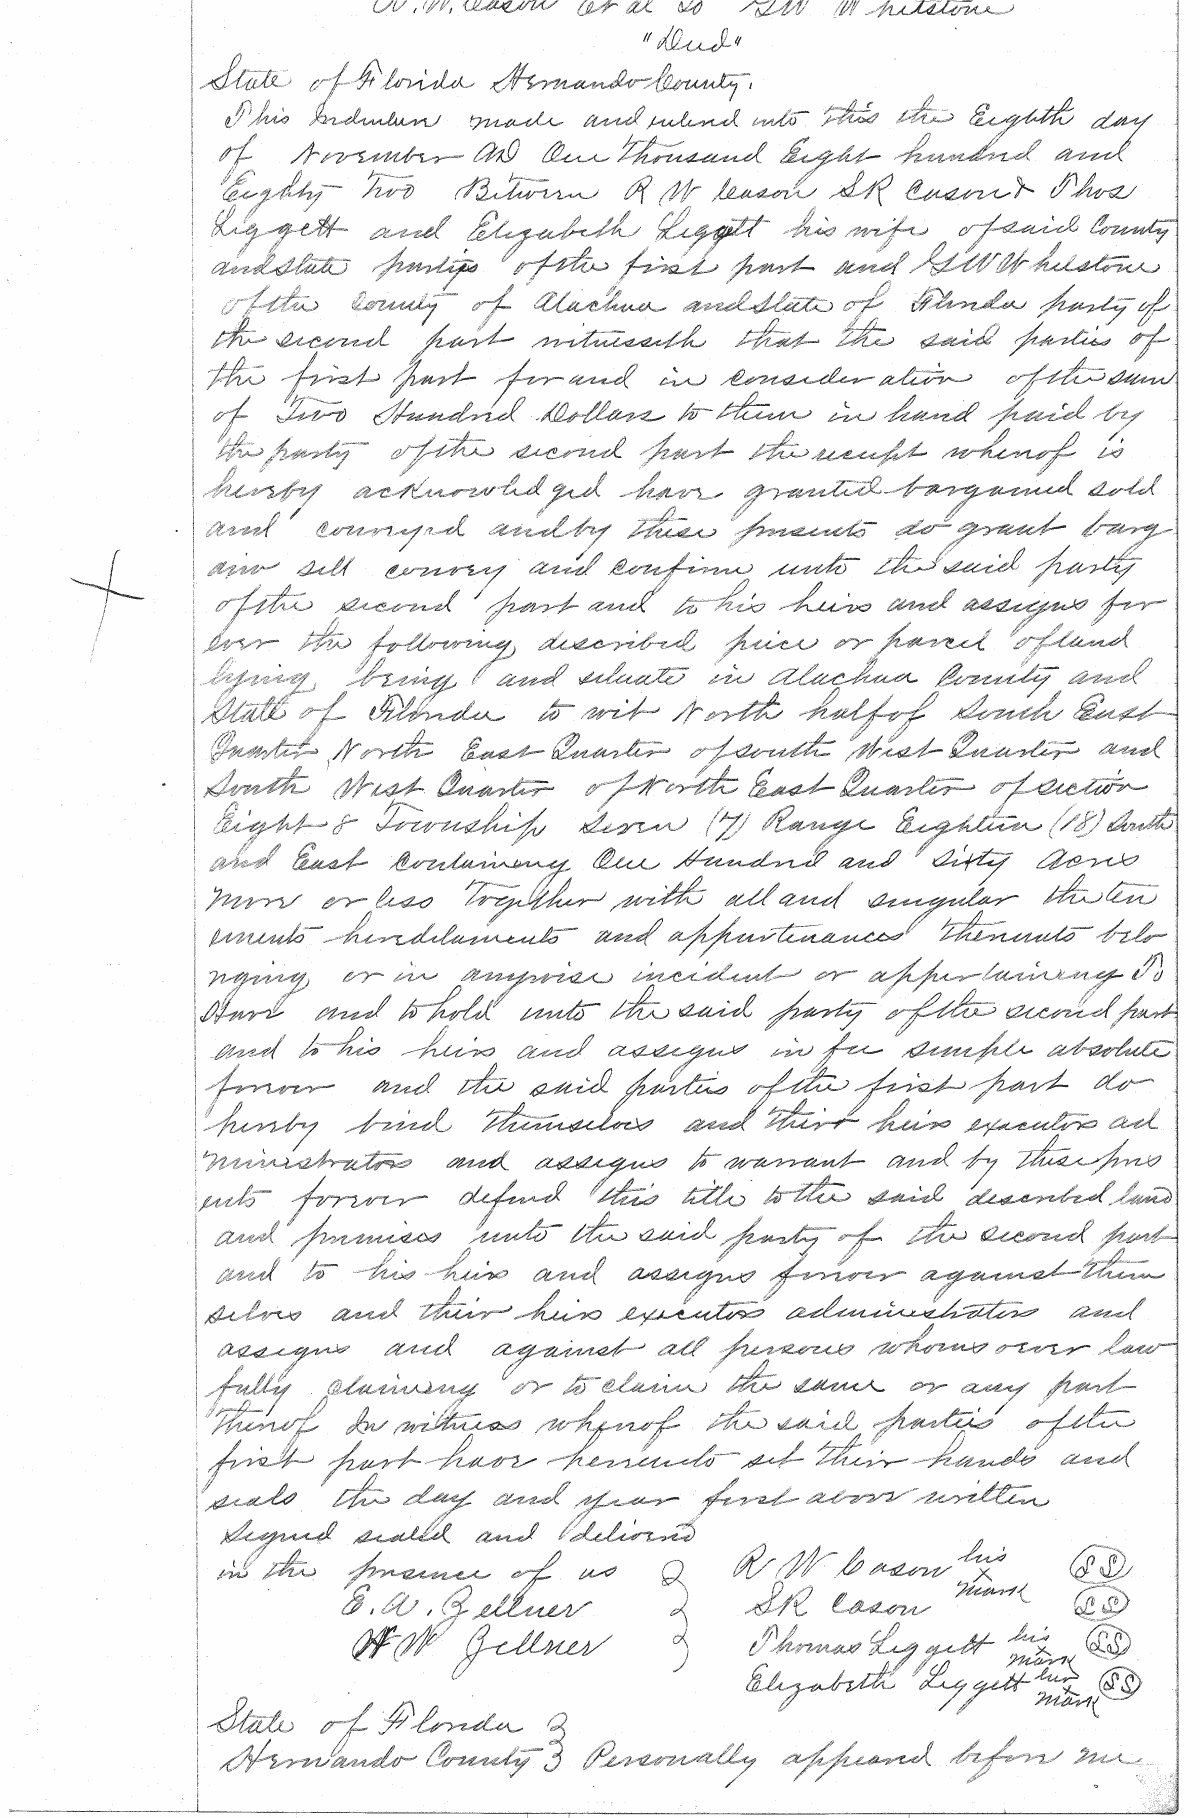 R. W. Cason Et al to GW Whetstone
"Deed"
State of Florida Hernando County.
This Indenture made and entered into this the Eighth day
of November AD One Thousand Eight hundred and
Eighty Two Between R W Cason SR Cason & Thos
Liggett and Elizabeth Liggett his wife of said County
and State parties of the first part and GW Whetstone
of the County of Alachua and State of Florida party of
the second part witnesseth that the said parties of
the first part for and in consideration of the sum
of Two Hundred Dollars to them in hand paid by
the party of the second part the receipt whereof is
hereby acknowledged have granted bargained sold
and conveyed and by these presents do grant barg
ain sell convey and confirm unto the said party
of the second part and to his heirs and assigns for
ever the following described piece or parcel of land
lying being and situate in Alachua County and
State of Florida to wit North half of South East
Quarter North East Quarter of south West Quarter and
South West Quarter of North East Quarter of section
Eight 8 Township Seven (7) Range Eighteen (18) South
and East containing One Hundred and Sixty Acres
more or less Together with all and singular the ten
ements hereditaments and appurtenances thereunto belo
nging or in anywise incident or appertaining To
Have and to hold unto the said party of the second part
and to his heirs and assigns in fee simple absolute
forever and the said parties of the first part do
hereby bind themselves and their heirs executors ad
ministrators and assigns to warrant and by these pres
ents forever defend this title to the said described land
and premises unto the said party of the second part
and to his heirs and assigns forever against them
selves and their heirs executors administrators and
assigns and against all persons whomsoever law
fully claiming or to claim the same or any part
thereof In witness whereof the said parties of the
first part have hereunto set their hands and
seals the day and year first above written
Signed sealed and delivered
in the presence of us R W Cason his x mark SS
E. A. Zellner SR Cason SS
W Zellner Thomas Liggett his x mark SS
Elizabeth Liggett her x mark SS
State of Florida
Hernando County Personally appeared before me